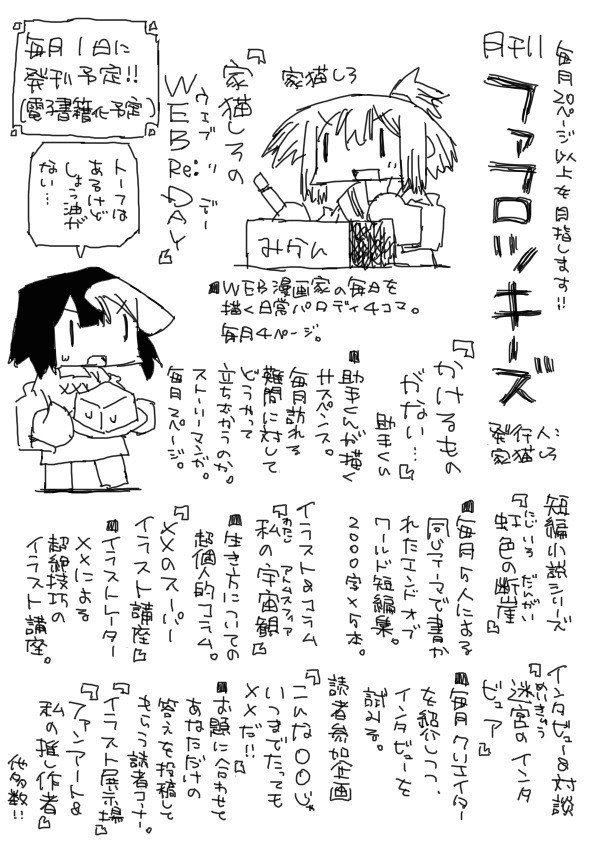 毎月20ページ以上を目指します!!
月刊
ファブロッキーズ
発行人:
家猫しろ
家猫しろ
みかん
『家猫しろの
WEB Re:DAY』
ウェブリデー
■WEB漫画家の毎日を
描く日常パロディ4コマ。
毎月4ページ。
毎月1日に
発刊予定!!
(電子書籍化予定)
トーフは
あるけど
しょう油が
ない…
『かけるもの
がない…』
助手くん
■助手くんが描く
サスペンス。
毎月訪れる
難問に対して
どうやって
立ちむかうのか。
ストーリーマンガ。
毎月2ページ。
短編小説シリーズ
『虹色の断崖』
にじいろ だんがい
■毎月5人による
同じテーマで書か
れたエンドオブ
ワールド短編集。
2000字×5本。
イラスト&コラム
『私の宇宙観』
わたし アトムスフィア
■生き方についての
超個人的コラム。
『××のスーパー
イラスト講座』
■イラストレーター
××による
超絶技巧の
イラスト講座。
インタビュー&対談
『迷宮のインタ
ビュア』
めいきゅう
■毎月クリエイター
を紹介しつつ、
インタビューを
試みる。
読者参加企画
『こんな○○じゃ
いつまでたっても
××だ!!』
■お題に合わせて
あなただけの
答えを投稿して
もらう読者コーナー。
『イラスト展示場』
『ファンアート&
私の推し作者』
他多数!!